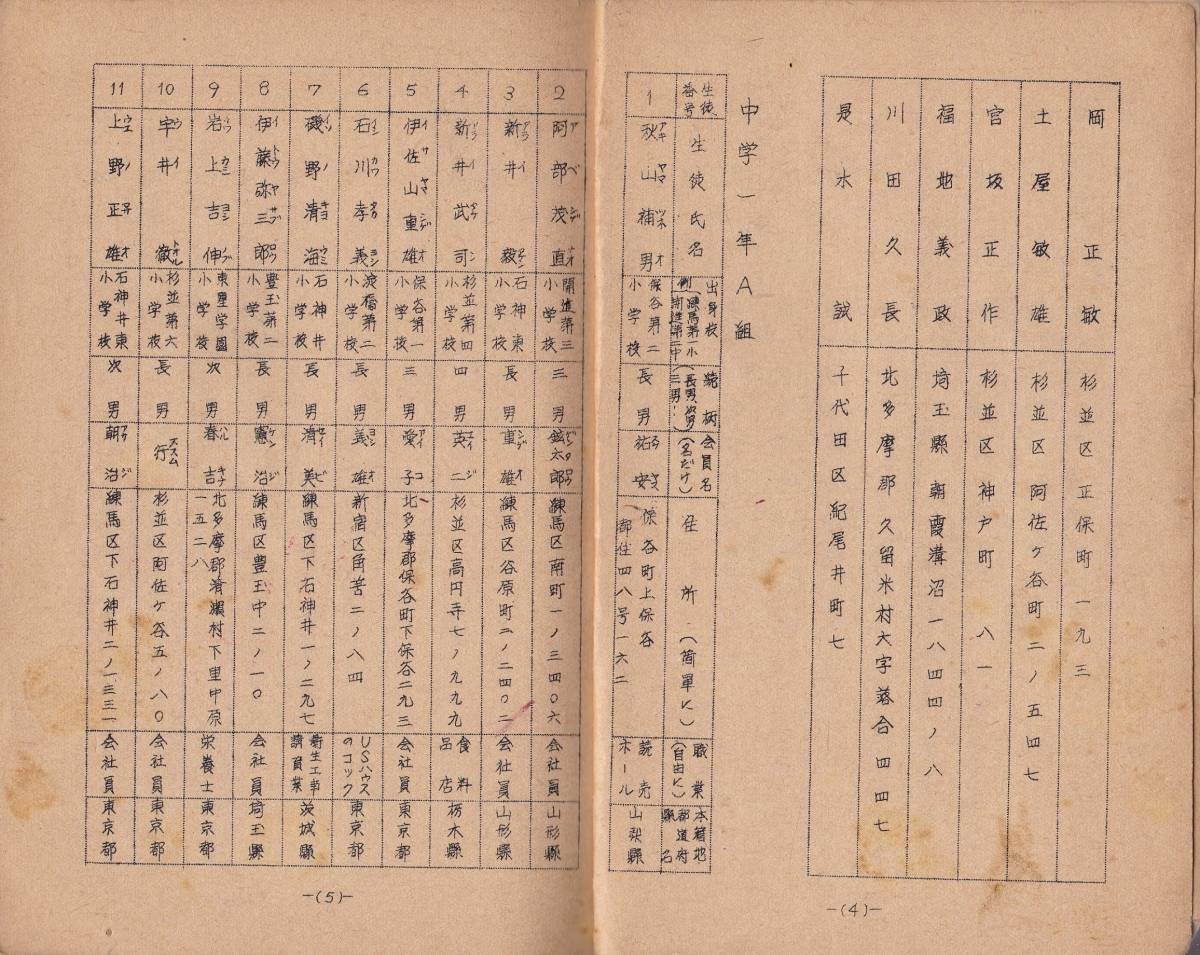 岡正敏 杉並区正保町一九三
土屋敏雄 杉並区阿佐ケ谷町二ノ五四七
宮坂正作 杉並区神戸町八一
福地義政 埼玉縣朝霞溝沼一八四四ノ八
川田久長 北多摩郡久留米村大字落合四四七
水誠 千代田区紀尾井町七
中学一年A組
生徒番号 生徒氏名 出身校 例(練馬第一小 開進第二中) 続柄(長男、次男 三男…) 会員名(名だけ) 住所(簡單に) 職業(自由に) 本籍地都道府縣名
1 秋山補男 アキヤマツネオ 保谷第二小学校 長男 祐安 保谷町上保谷都住四八号一六二 読売ホール 山梨縣
-(4)-
2 阿部茂直 アベシゲナオ 開進第三小学校 三男 太郎 練馬区南町一ノ三四〇六 会社員 山形縣
3 新井毅 アライ 石神東小学校 長男 重雄 シゲオ 練馬区谷原町二ノ二四〇二 会社員 山形縣
4 新井武司 アライタケシ 杉並第四小学校 四男 英二 エイジ 杉並区高円寺七ノ九九九 食料品店 栃木縣
5 伊佐山重雄 イサヤマシゲオ 保谷第一小学校 三男 愛子 アイコ 北多摩郡保谷町下保谷二九三 会社員 東京都
6 石川孝義 イシカワタカヨシ 淀橋第二小学校 長男 義雄 ヨシオ 新宿区角筈二ノ八四 USハウスのコック 東京都
7 磯野清海 イソノキヨウミ 石神井小学校 長男 清美 セイビ 練馬区下石神井一ノ二九七 衛生工事請負業 茨城縣
8 伊藤弥三郎 イトウヤサブロウ 豊玉第二小学校 長男 憲治 ケンジ 練馬区豊玉中二ノ一〇 会社員 埼玉縣
9 岩上吉伸 イワカミヨシノブ 東星学園小学校 次男 春吉 ハルキチ 北多摩郡清瀬村下里中原一五二八 栄養士 東京都
10 宇井徹 ウイトオル 杉並第六小学校 長男 行 ススム 杉並区阿佐ケ谷五ノ八〇 会社員 東京都
11 上野正雄 ウエノマサオ 石神井東小学校 次男 朝治 アサジ 練馬区下石神井二ノ一三三一 会社員 東京都
-(5)-